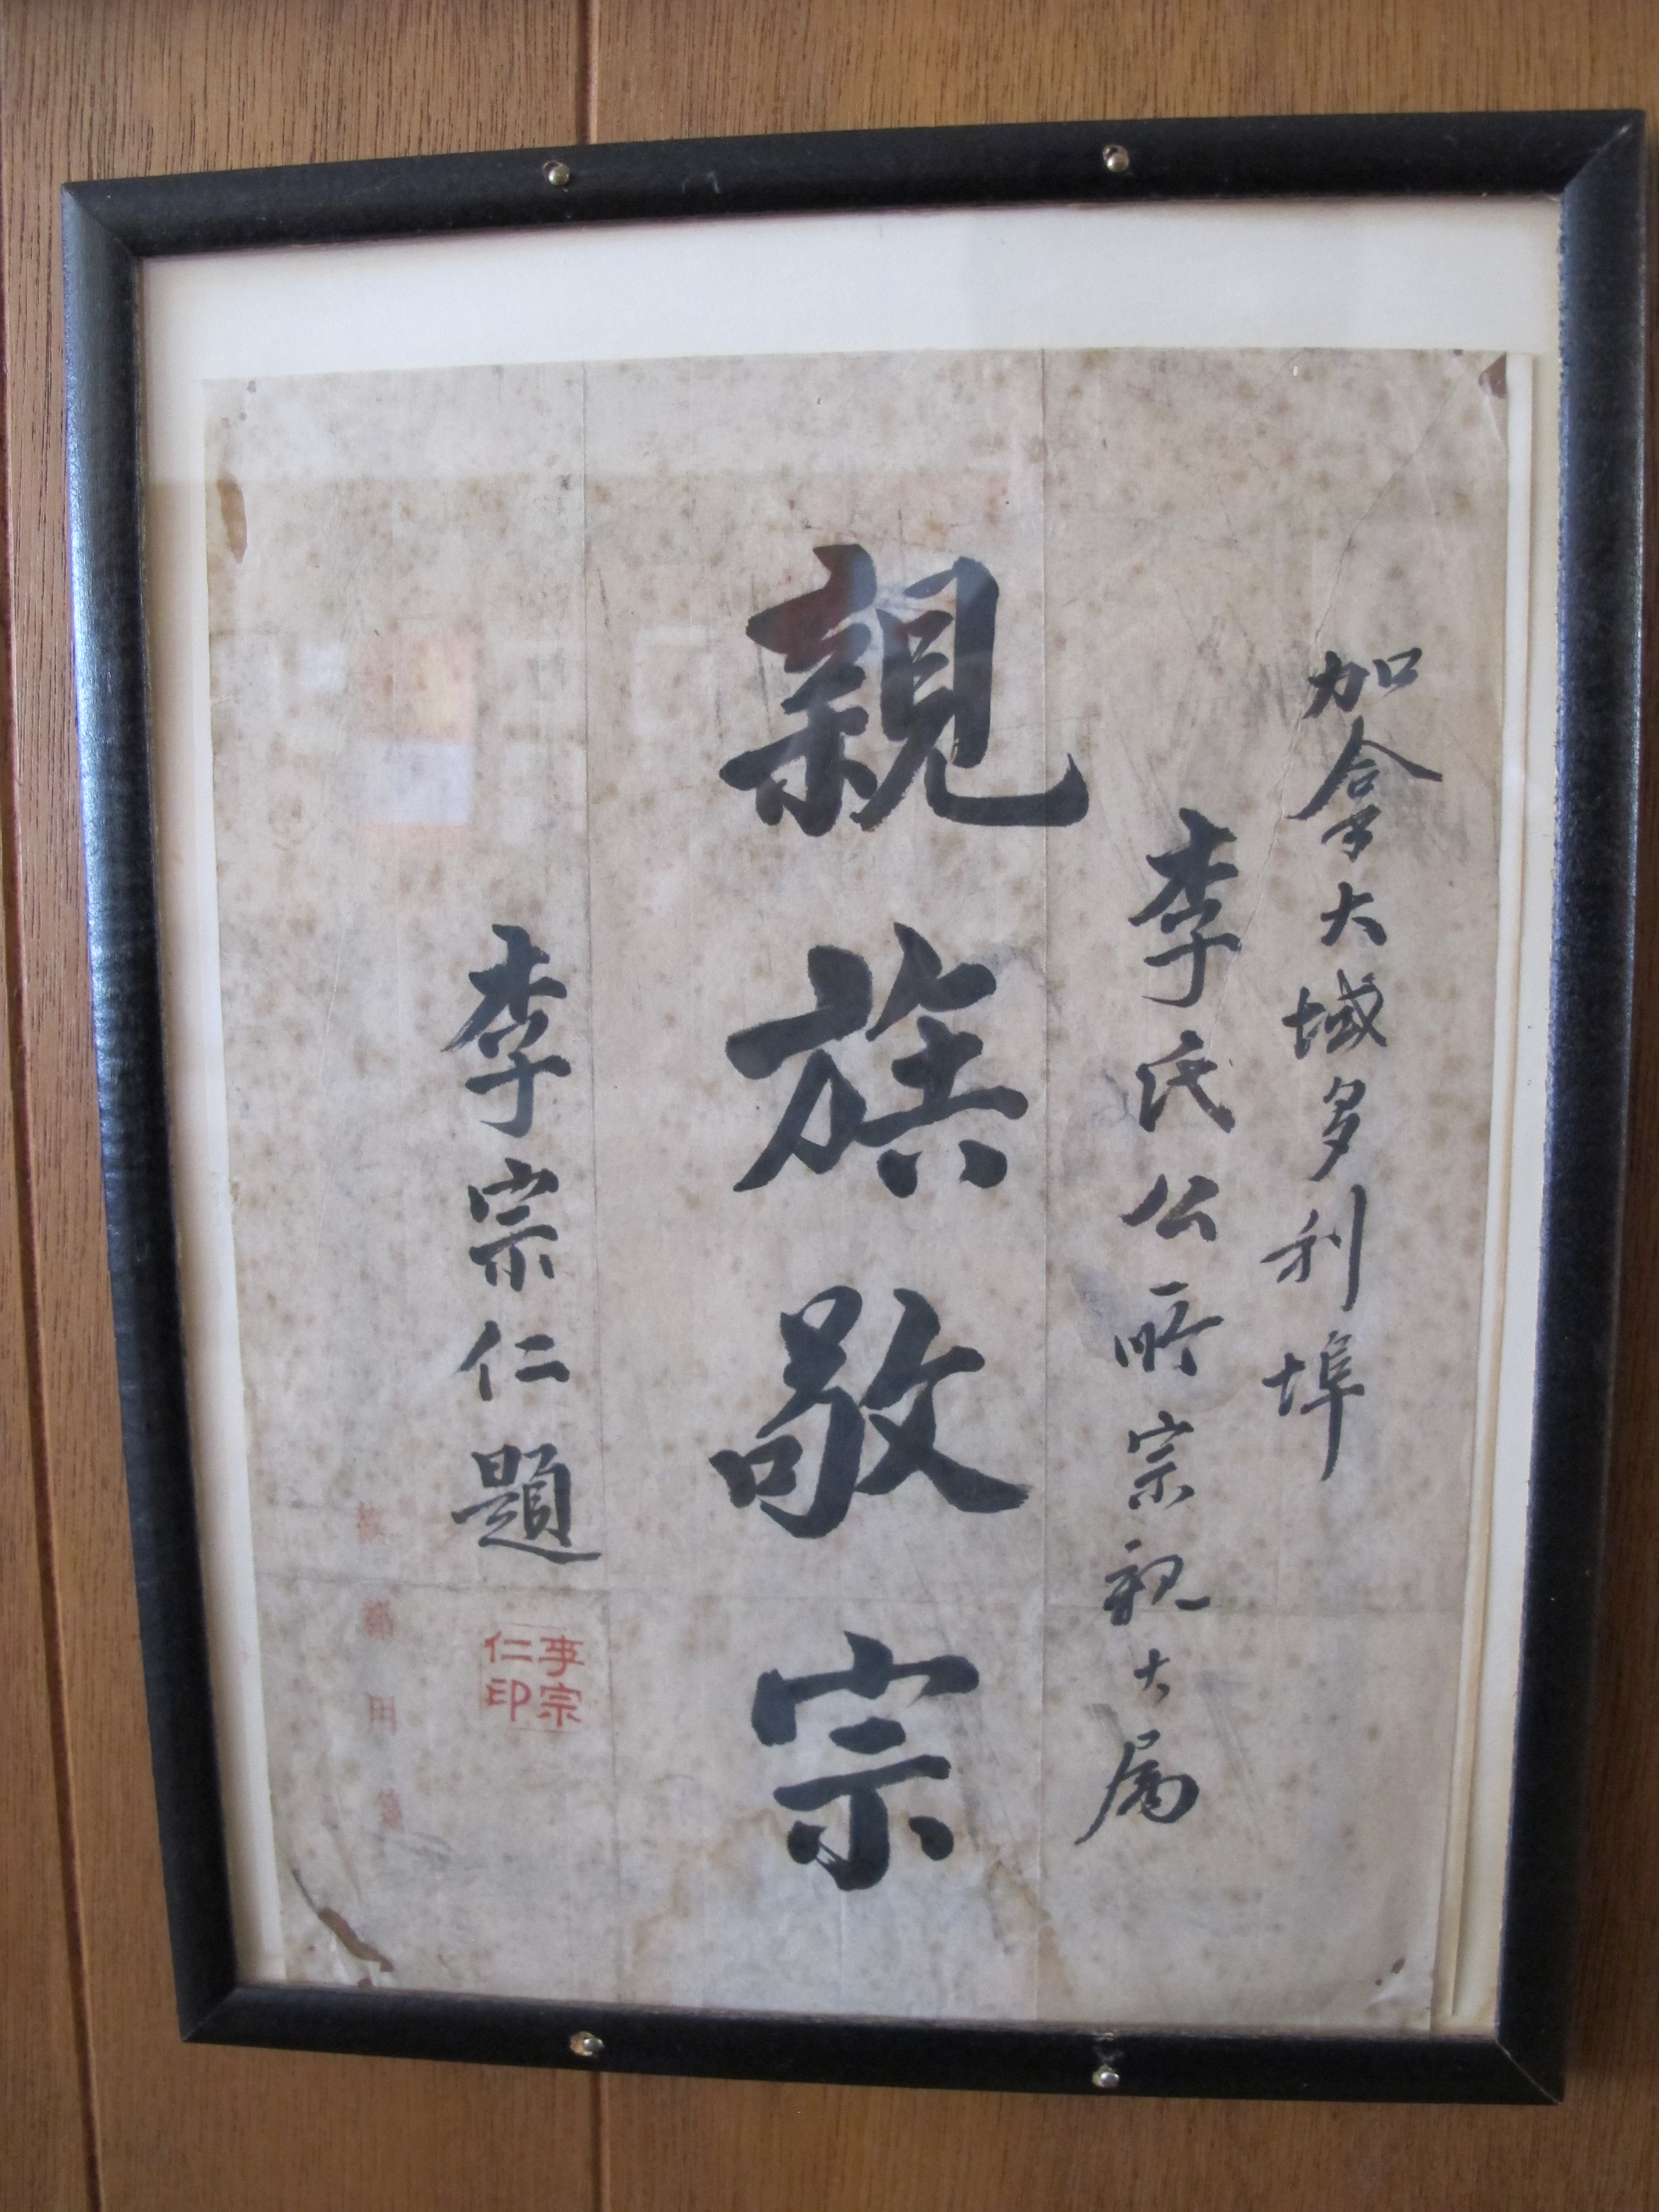 加拿大域多利埠
李氏公所宗親大屬
親族敬宗
李宗仁題
李宗仁印